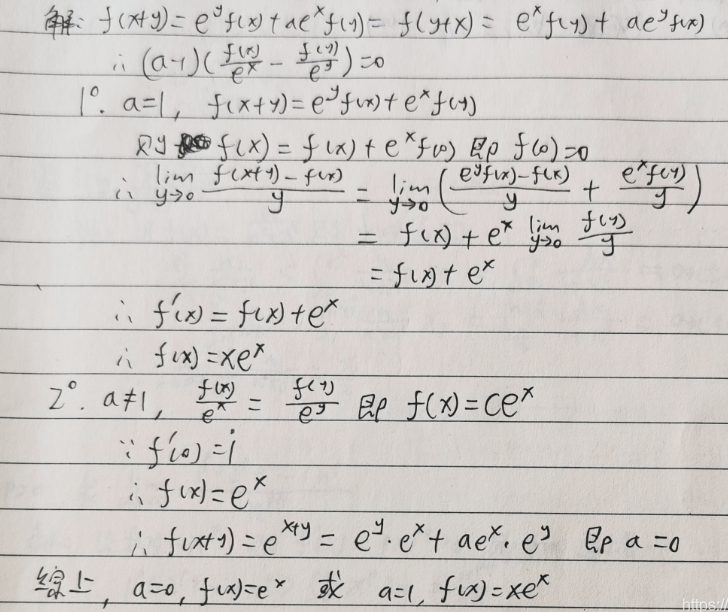 解: f(x+y)=e^y f(x)+ae^x f(y)=f(y+x)=e^x f(y)+ae^y f(x)
∴ (a-1)(f(x)/e^x - f(y)/e^y)=0
1°. a=1, f(x+y)=e^y f(x)+e^x f(y)
则 f(x)=f(x)+e^x f(0) 即 f(0)=0
∴ lim y→0 (f(x+y)-f(x))/y = lim y→0 ((e^y f(x)-f(x))/y + e^x f(y)/y)
= f(x)+e^x lim y→0 f(y)/y
= f(x)+e^x
∴ f'(x)=f(x)+e^x
∴ f(x)=xe^x
2°. a≠1, f(x)/e^x = f(y)/e^y 即 f(x)=Ce^x
∵ f'(0)=1
∴ f(x)=e^x
∴ f(x+y)=e^{x+y}=e^y·e^x+ae^x·e^y 即 a=0
综上, a=0, f(x)=e^x 或 a=1, f(x)=xe^x
https://